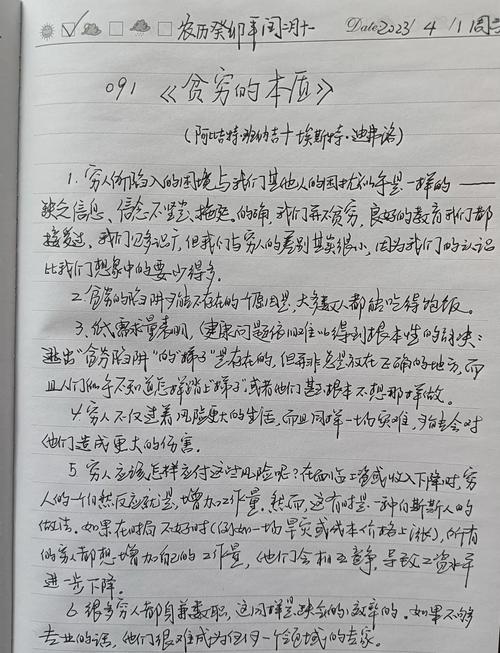 农历癸卯年闰二月十一 Date 2023/4/1 周六
091 《贫穷的本质》
(阿比吉特·班纳吉十埃斯特·迪弗洛)
1. 穷人所陷入的困境与我们其他人的困扰似乎是一样的——
缺乏信息、信念不坚定、拖延。的确,我们并不贫穷,良好的教育我们都
接受过,我们见多识广,但我们与穷人的差别其实很小,因为我们的认识
比我们想象中的要少得多。
2. 贫穷的陷阱可能不存在的一个原因是,大多数人都能吃得饱饭。
3. 低需求量表明,健康问题依旧难以得到根本性的解决:
逃出"贫穷陷阱"的"梯子"是存在的,但并非总是放在正确的地方,而
且人们似乎不知道怎样踏上"梯子",或者他们甚至根本不想那样做。
4. 穷人不仅过着风险更大的生活,而且同样一场灾难,可能会对
他们造成更大的伤害。
5. 穷人应该怎样应付这些风险呢?在面临工资或收入下降时,穷
人的一个自然反应就是,增加工作量。然而,这有时是一种自断斯人的
做法。如果在时局不好时(例如一场旱灾或成本价格上涨),所有
的穷人都想增加自己的工作量,他们会相互竞争,导致工资水平
进一步下降。
6. 很多穷人都身兼数职,这同样是缺乏效率的。如果不够
专业的话,他们很难成为任何一个领域的专家。